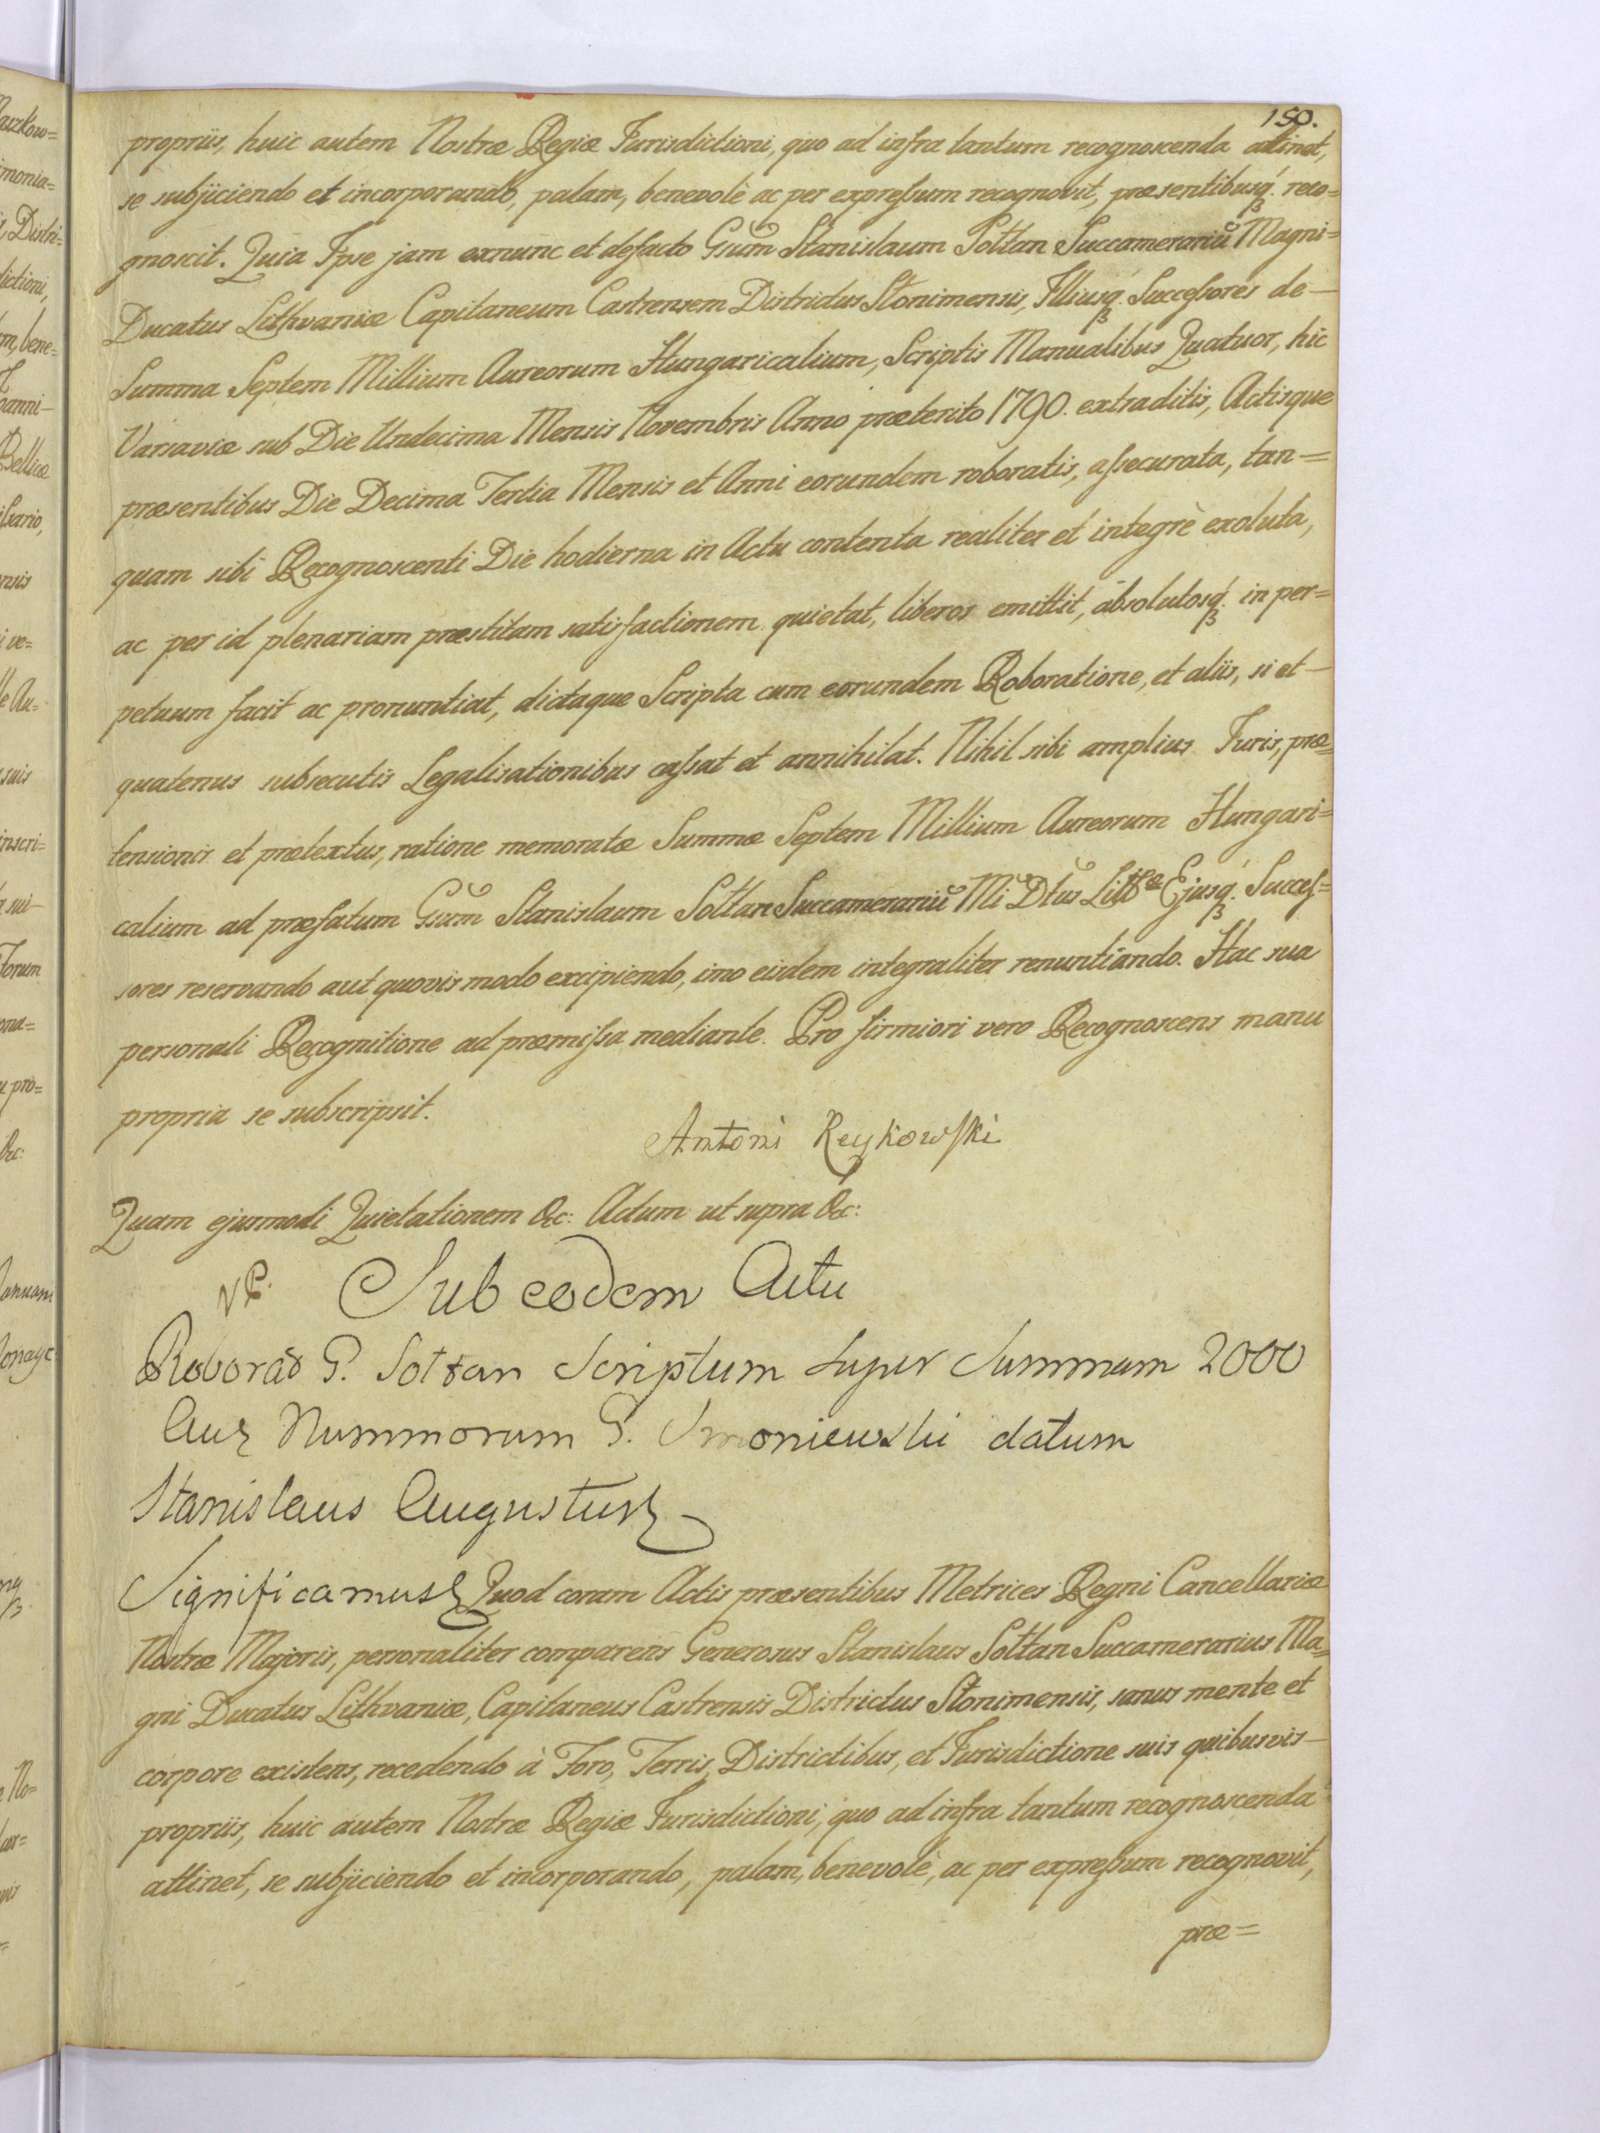 150.
propriis, huic autem Nostræ Regiæ Jurisdictioni, quo ad infra tantum recognoscenda attinet,
se subjiciendo et incorporando, palam, benevolè ac per expressum recognovit, præsentibusq́ꝫ reco=
gnoscit. Quia Ipse jam exnunc et defacto Gsum Stanislaum Sołtan Succamerariū Magni=
Ducatus Lithvaniæ Capitaneum Castrensem Districtus Słonimensis, Illiusq́ꝫ Successores de—
Summa Septem Millium Aureorum Hungaricalium, Scriptis Manualibus Quatuor, hic
Varsaviæ sub Die Undecima Mensis Novembris Anno præterito 1790. extraditis, Actisque
præsentibus Die Decima Tertia Mensis et Anni eorundem roboratis, assecurata, tan=
quam sibi Recognoscenti Die hodierna in Actu contenta realiter et integrè exoluta,
ac per id plenariam præstitam satisfactionem quietat, liberos emittit, absolutosq́ꝫ in per=
petuum facit ac pronuntiat, dictaque Scripta cum eorundem Roboratione, et aliis, si et—
quatenus subsecutis Legalisationibus cassat et annihilat. Nihil sibi amplius Juris, præ=
tensionis et prætextus, ratione memoratæ Summæ Septem Millium Aureorum Hungari=
calium ad præfatum Gsum Stanislaum Sołtan Succamerariū Mi Dtus Litthæ Ejusq́ꝫ Succes=
sores reservando aut quovis modo excipiendo, imo eisdem integraliter renuntiando. Hac sua
personali Recognitione ad præmissa mediante. Pro firmiori vero Recognoscens manu
propria se subscripsit.
Antoni Reykowski
Quam ejusmodi Quietationem &c: Actum ut supra &c:
Sub eodem Actu
Roborao G. Sołtan Scriptum super Summam 2000
Aur Nummorum G. Smoniewski datum
Stanislaus Augustus
Significamus Quod coram Actis præsentibus Metrices Regni Cancellariæ
Nostræ Majoris, personaliter comparens Generosus Stanislaus Sołtan Succamerarius Ma=
gni Ducatus Lithvaniæ, Capitaneus Castrensis Districtus Słonimensis, sanus mente et
corpore existens, recedendo à Foro, Terris, Districtibus, et Jurisdictione suis quibusvis—
propriis, huic autem Nostræ Regiæ Jurisdictioni, quo ad infra tantum recognoscenda
attinet, se subjiciendo et incorporando, palam, benevolè, ac per expressum recognovit,
præ=